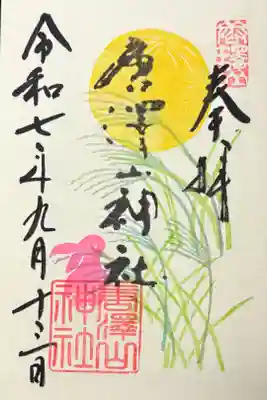 奉拝
唐澤山神社
唐澤山
神社
令和七年九月十三日